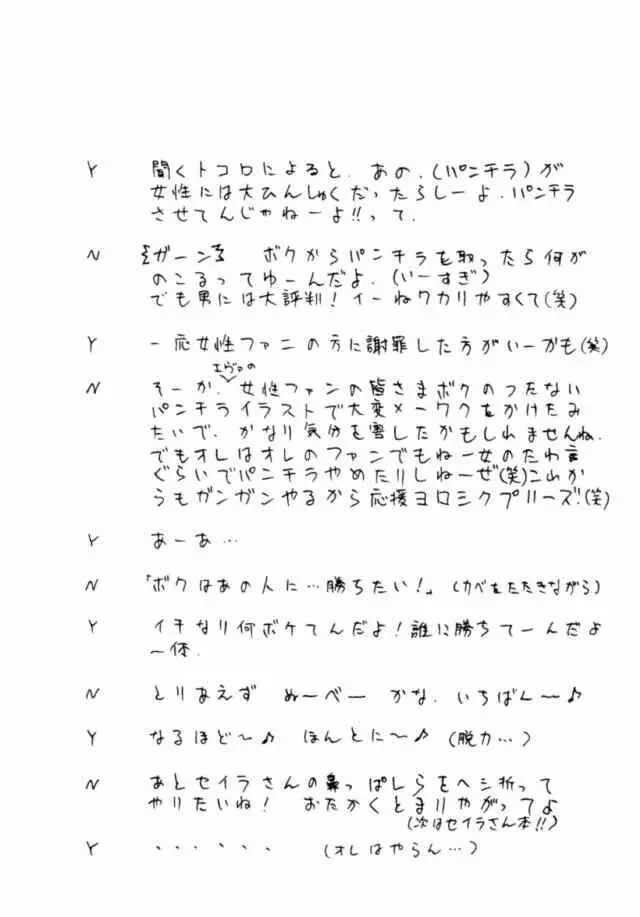 Y 聞くトコロによると、あの、(パンチラ)が
女性には大ひんしゅくだったらしーよ、パンチラ
させてんじゃねーよ!!って、
N ⦅ガーン⦆ ボクからパンチラを取ったら何が
のこるってゆーんだよ、(いーすぎ)
でも男には大評判!イーねワカリやすくて(笑)
Y 一応女性ファンの方に謝罪した方がいーかも(笑)
エヴァの
N そーか、女性ファンの皆さまボクのつたない
パンチライラストで大変メーワクをかけたみ
たいで、かなり気分を害したかもしれませんね、
でもオレはオレのファンでもねー女のたわ言
ぐらいでパンチラやめたりしねーぜ(笑)これか
らもガンガンやるから応援ヨロシクプリーズ!(笑)
Y あーあ…
N 「ボクはあの人に…勝ちたい!」(カベをたたきながら)
Y イキなり何ボケてんだよ!誰に勝ちてーんだよ
一体、
N とりあえず ぬーべー かな、いちばん〜♪
Y なるほど〜♪ ほんとに〜♪ (脱力…)
N あとセイラさんの鼻っぱしらをヘシ折って
やりたいね! おたかくとまりやがってよ
(次はセイラさん本!!)
Y ・・・・・・ (オレはやらん…)